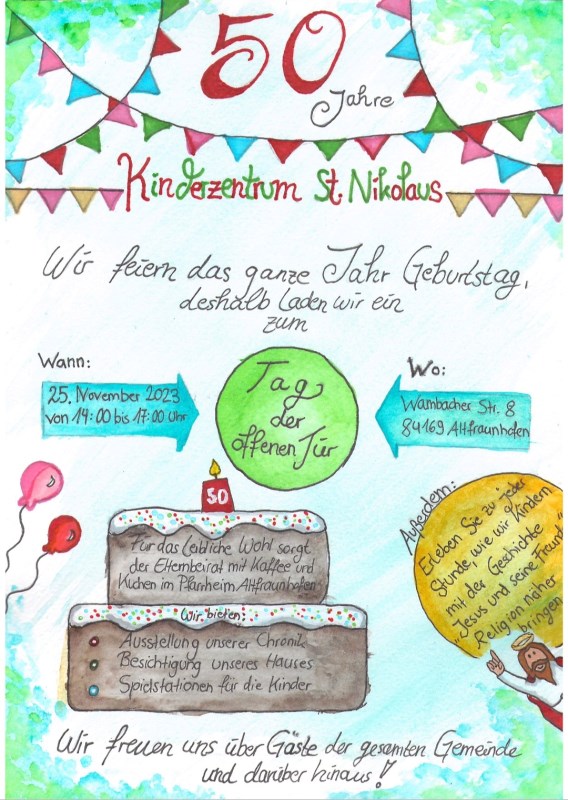 50
Jahre
Kinderzentrum St. Nikolaus
Wir feiern das ganze Jahr Geburtstag,
deshalb laden wir ein
zum
Wann:
25. November 2023
von 14:00 bis 17:00 Uhr
Tag
der
offenen Tür
Wo:
Wambacher Str. 8
84169 Altfraunhofen
50
Für das leibliche Wohl sorgt
der Elternbeirat mit Kaffee und
Kuchen im Pfarrheim Altfraunhofen
Wir bieten:
Ausstellung unserer Chronik
Besichtigung unseres Hauses
Spielstationen für die Kinder
Außerdem:
Erleben Sie zu jeder
Stunde wie wir Kindern
mit der Geschichte
„Jesus und seine Freunde"
Religion näher
bringen
Wir freuen uns über Gäste der gesamten Gemeinde
und darüber hinaus!